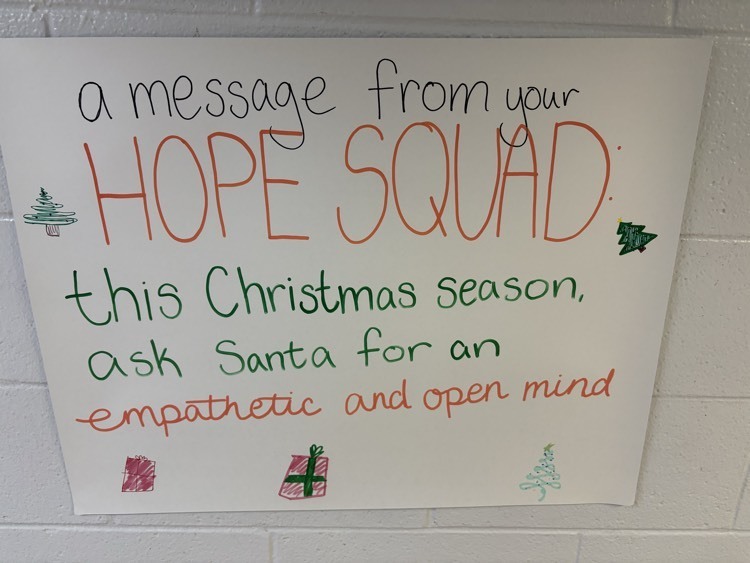 a message from your
HOPE SQUAD:
this Christmas season,
ask Santa for an
empathetic and open mind